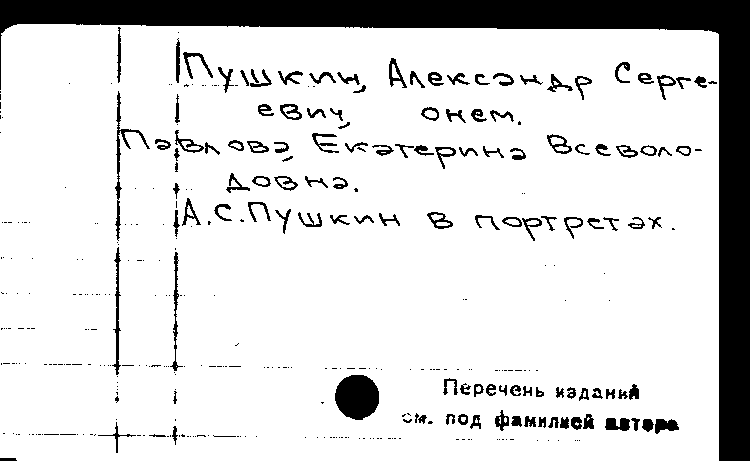 Пушкин, Александр Серге-
евич, о нем.
Павлова, Екатерина Всеволо-
довна.
А.С.Пушкин в портретах.
Перечень изданий
см. под фамилией автора